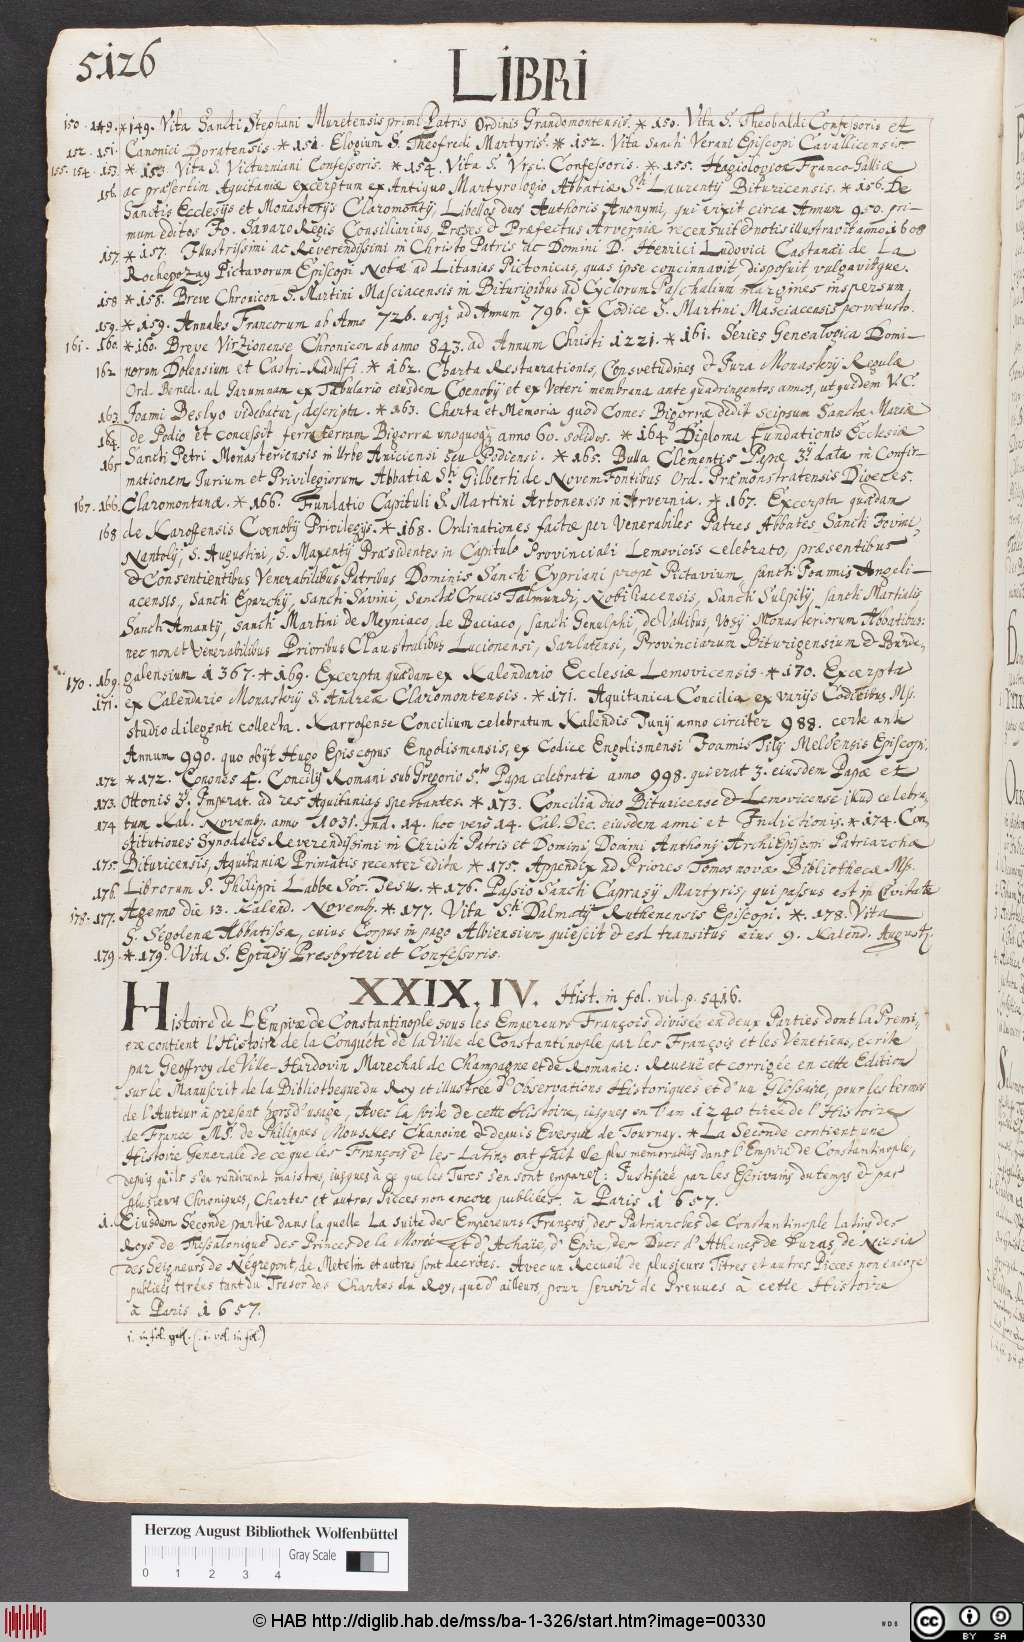 5126
LIBRI
150. 149. *149. Vita Sancti Stephani Muretensis primi Patris Ordinis Grandomontensis. * 150. Vita S. Theobaldi Confessoris et
152. 151. Canonici Doratensis. * 151. Elogium S. Theofredi Martyris. * 152. Vita Sancti Verani Episcopi Cavallicensis
155. 154. 153. * 153. Vita S. Victurniani Confessoris. * 154. Vita S. Ursi Confessoris. * 155. Hagiologion Franco-Galliæ
156. ac præsertim Aquitaniæ excerptum ex Antiquo Martyrologio Abbatiæ Sti. Laurentij Bituricensis. * 156. De
Sanctis Ecclesijs et Monasterijs Claromontij, Libellos duos Authoris Anonymi, qui vixit circa Annum 950. pri-
mum editos Jo. Savaro Regis Consiliarius, Præses et Præfectus Arverniæ recensuit et notis illustravit anno 1608
157. * 157. Illustrissimi ac Reverendissimi in Christo Patris ac Domini D. Henrici Ludovici Castanæi de La
Rochepozay Pictavorum Episcopi Notæ ad Litanias Pictonicas, quas ipse concinnavit disposuit vulgavitque.
158 * 158. Breve Chronicon S. Martini Masciacensis in Biturigibus ad Cyclorum Paschalium margines inspersum,
159. * 159. Annales Francorum ab Anno 726. usque ad Annum 796. ex Codice S. Martini Masciacensis pervetusto.
161. 160. * 160. Breve Virzionense Chronicon ab anno 843. ad Annum Christi 1221. * 161. Series Genealogica Domi-
162 norum Dolensium et Castri-Radulfi. * 162. Charta Restaurationis, Consvetudines et Jura Monasterij Regulæ
Ord. Bened. ad Garumnam ex Tabulario eiusdem Coenobij et ex Veteri membrana ante quadringentos annos, ut quidem V. C.
163 Joanni Beslyo videbatur, descripta. * 163. Charta et Memoria quod Comes Bigorræ dedit seipsum Sanctæ Mariæ
164. de Podio et concessit ferre terram Bigorræ unoquoque anno 60. solidos. * 164. Diploma fundationis Ecclesiæ
165 Sancti Petri Monasteriensis in Urbe Aniciensi seu Podiensi. * 165. Bulla Clementis Papæ 3ij data in Confir-
mationem Jurium et Privilegiorum Abbatiæ Sti. Gilberti de Novem Fontibus Ord. Præmonstratensis Dioeces.
167. 166. Claromontanæ. * 166. Fundatio Capituli S. Martini Artonensis in Arvernia. * 167. Excerpta quædam
168 de Karoffensis Coenobij Privilegijs. * 168. Ordinationes factæ per Venerabiles Patres Abbates Sancti Jovini,
Nantolij, S. Augustini, S. Maxentij Præsidentes in Capitulo Provinciali Lemovicis celebrato, præsentibus
et Consentientibus Venerabilibus Patribus Dominis Sancti Cypriani prope Pictavium, sancti Joannis Angeli-
acensis, Sancti Eparchij, Sancti Savini, Sanctæ Crucis Talmundi, Nobiliacensis, Sancti Sulpitij, sancti Martialis
Sancti Amantij, sancti Martini de Meyniaco, de Baciaco, sancti Genulphi, de Vallibus, Vosij Monasteriorum Abbatibus:
nec non et Venerabilibus Prioribus Claustralibus Lucionensi, Sarlatensi, Provinciarum Biturigensium et Burde-
170. 169. galensium 1367. * 169. Excerpta quædam ex Kalendario Ecclesiæ Lemovicensis. * 170. Excerpta
171. ex Calendario Monasterij S. Andreæ Claromontensis. * 171. Aquitanica Concilia ex varijs Codicibus Mss.
studio diligenti collecta. Karrofense Concilium celebratum Kalendis Junij anno circiter 988. certe ante
Annum 990. quo obijt Hugo Episcopus Engolismensis, ex Codice Engolismensi Joannis Tilij Meldensis Episcopi.
172 * 172. Canones 4. Concilij Romani sub Gregorio 5to Papa celebrati anno 998. qui erat 3. eiusdem Papæ et
173. Ottonis 3ij Imperat. ad res Aquitanias spectantes. * 173. Concilia duo Bituricense et Lemovicense illud celebra-
174 tum Kal. Novemb. anno 1031. Ind. 14. hoc vero 14. Cal. Dec. eiusdem anni et Indictionis. * 174. Con
stitutiones Synodales Reverendissimi in Christi Patris et Domini Domni Anthonij ArchiEpiscopi Patriarchæ
175. Bituricensis, Aquitaniæ Primatis recenter editæ * 175. Appendix ad Priores Tomos novæ Bibliothecæ Mss.
176. Librorum P. Philippi Labbe Soc. Jesu. * 176. Passio Sancti Caprasij Martyris, qui passus est in Civitate
178. 177. Agenno die 13. Kalend. Novemb. * 177. Vita Sti Dalmatij Ruthenensis Episcopi. * 178. Vita
S. Segolenæ Abbatissæ, cuius Corpus in pago Albiensium quiescit et est transitus eius 9. Kalend. Augusti.
179 * 179. Vita S. Eptadij Presbyteri et Confessoris.
XXIX. IV. Hist. in fol. vid. p. 5416.
Histoire de L'Empire de Constantinople sous les Empereurs François divisée en deux Parties dont la Premi-
ere contient l'Histoire de la Conquête de la Ville de Constantinople par les François et les Vénetiens, ecrite
par Geoffroy de Ville-Hardovin Marechal de Champagne et de Romanie: Reueuë et corrigée en cette Edition
sur le Manuscrit de la Bibliotheque du Roy et illustrée d'Observations Historiques et d'un Glossaire, pour les termes
de l'Auteur à present hors d'usage, Avec la suite de cette Histoire, iusques en l'an 1240 tirée de l'Histoire
de France MS. de Philippes Mouskes Chanoine et depuis Evesque de Tournay. * La Seconde contient une
Histoire Generale de ce que les François et les Latins ont fait de plus memorables dans l'Empire de Constantinople,
depuis qu'ils s'en rendirent maistres, iusques à ce que les Turcs s'en sont emparez: Justifiée par les Escrivains du temps et par
plusieurs Chroniques, Chartes et autres Pieces non encore publiées à Paris 1657.
1. Eiusdem Seconde partie dans la quelle La Suite des Empereurs François, des Patriarches de Constantinople Latins des
Roys de Thessalonique des Princes de la Morée et d'Achaïe, d'Epire, des Ducs d'Athenes, de Duras, de Nicsia
des Seigneurs de Negrepont, de Metelin et autres sont decrites. Avec un Recueil de plusieurs Titres et autres Pieces non encore
publiées tirées tant du Tresor des Chartes du Roy, que d'ailleurs, pour servir de Preuves à cette Histoire
à Paris 1657.
1. in fol. (: 1. vol. in fol.)
Herzog August Bibliothek Wolfenbüttel
Gray Scale
0 1 2 3 4
© HAB http://diglib.hab.de/mss/ba-1-326/start.htm?image=00330
WDB
cc BY SA